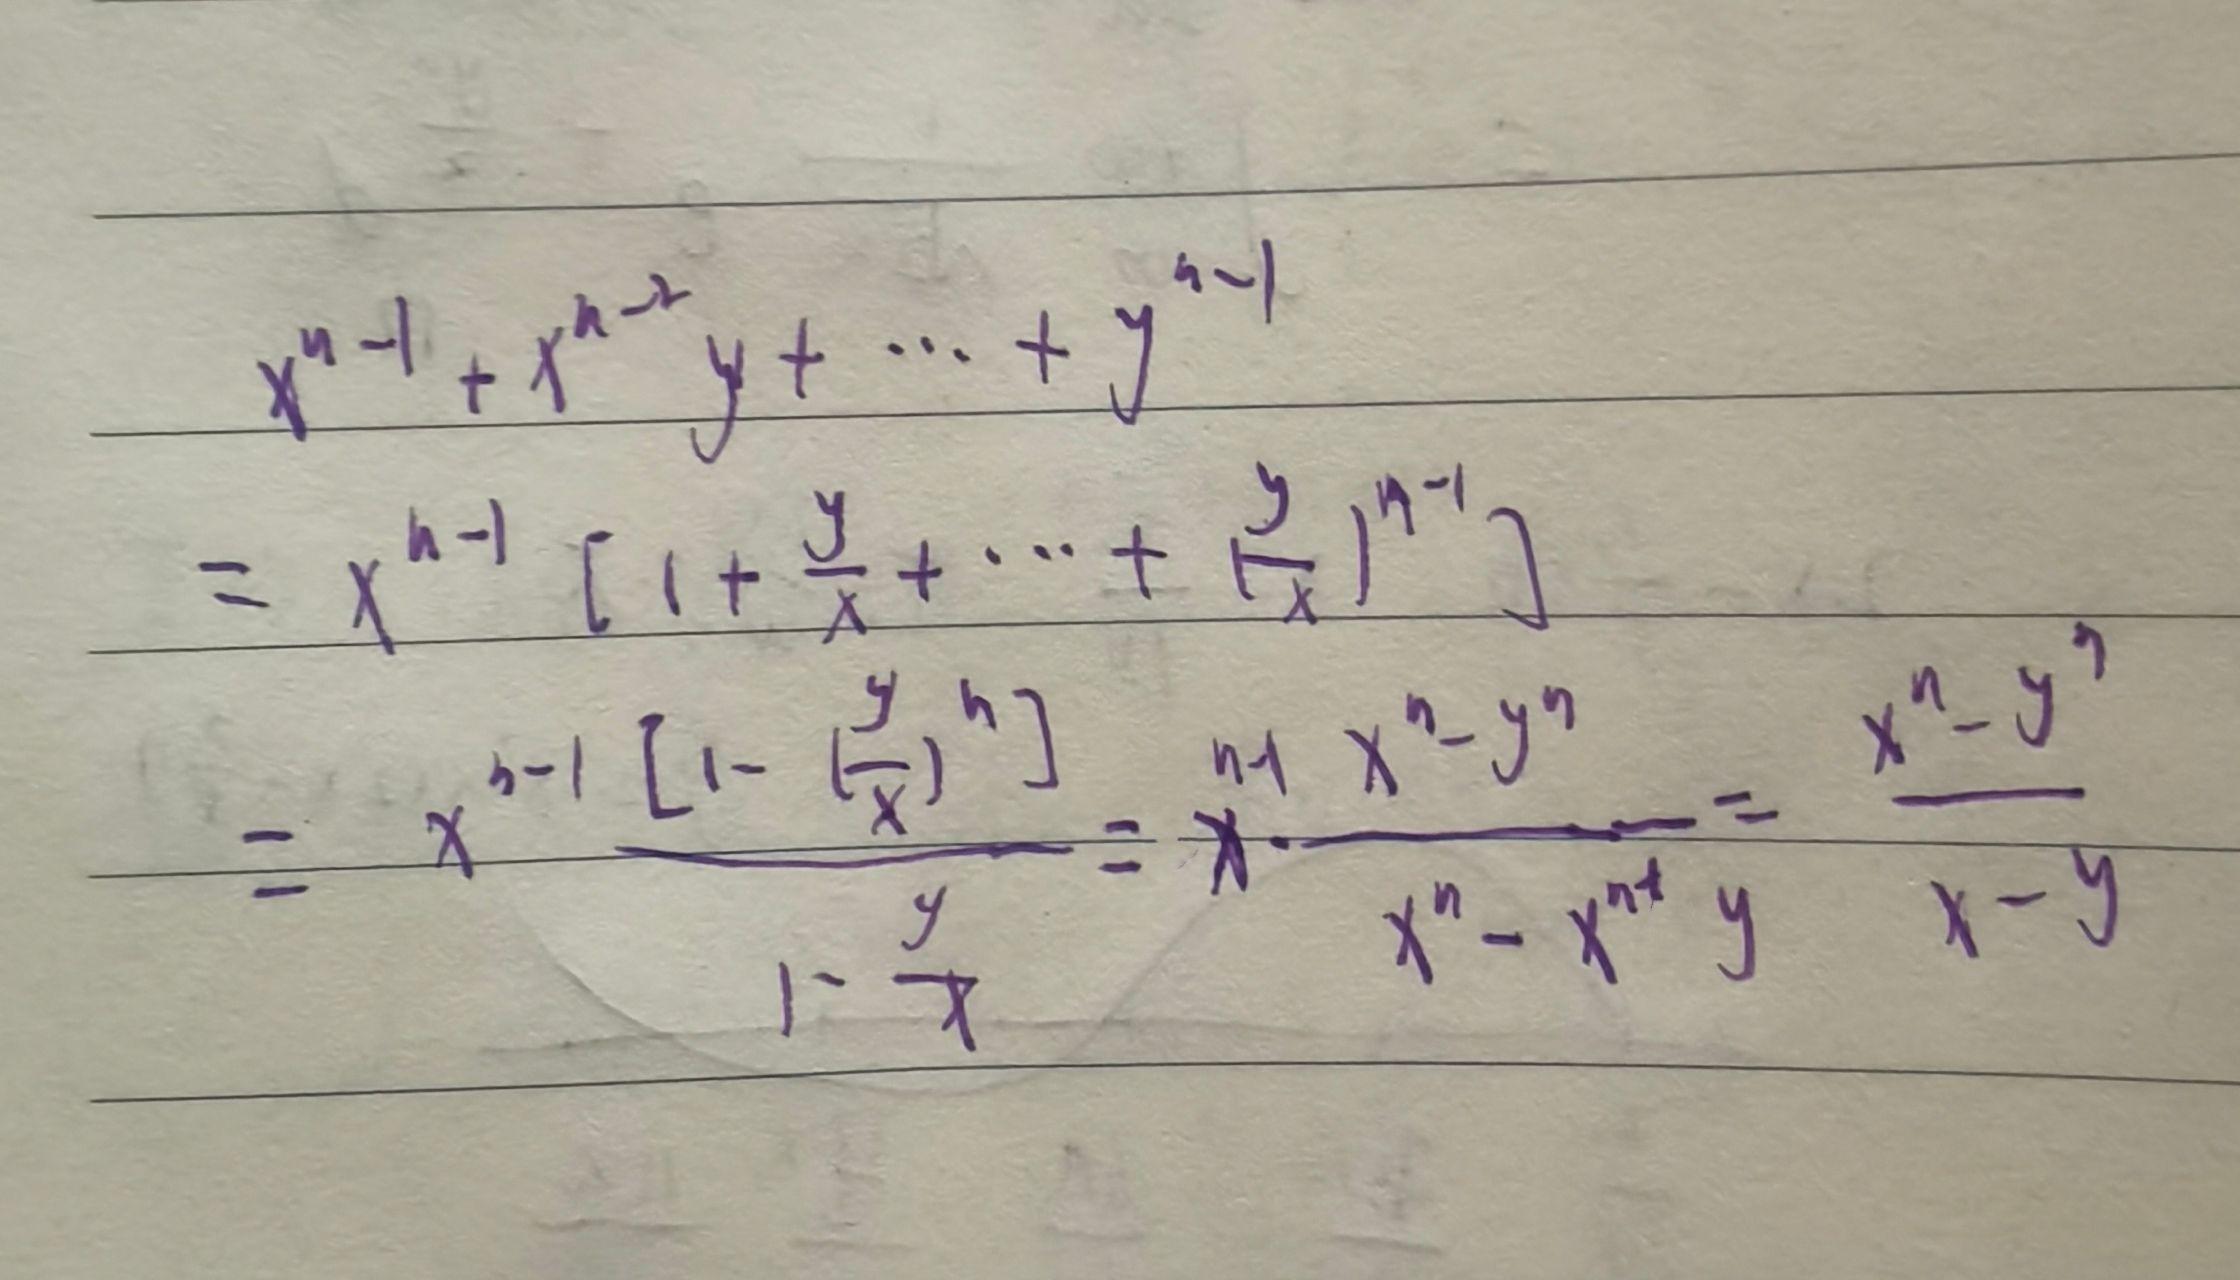 x^{n-1} + x^{n-2} y + ... + y^{n-1}
= x^{n-1} [1 + \frac{y}{x} + ... + (\frac{y}{x})^{n-1}]
= x^{n-1} \frac{[1 - (\frac{y}{x})^n]}{1 - \frac{y}{x}} = x^{n-1} \cdot \frac{x^n - y^n}{x^n - x^{n-1} y} = \frac{x^n - y^n}{x - y}